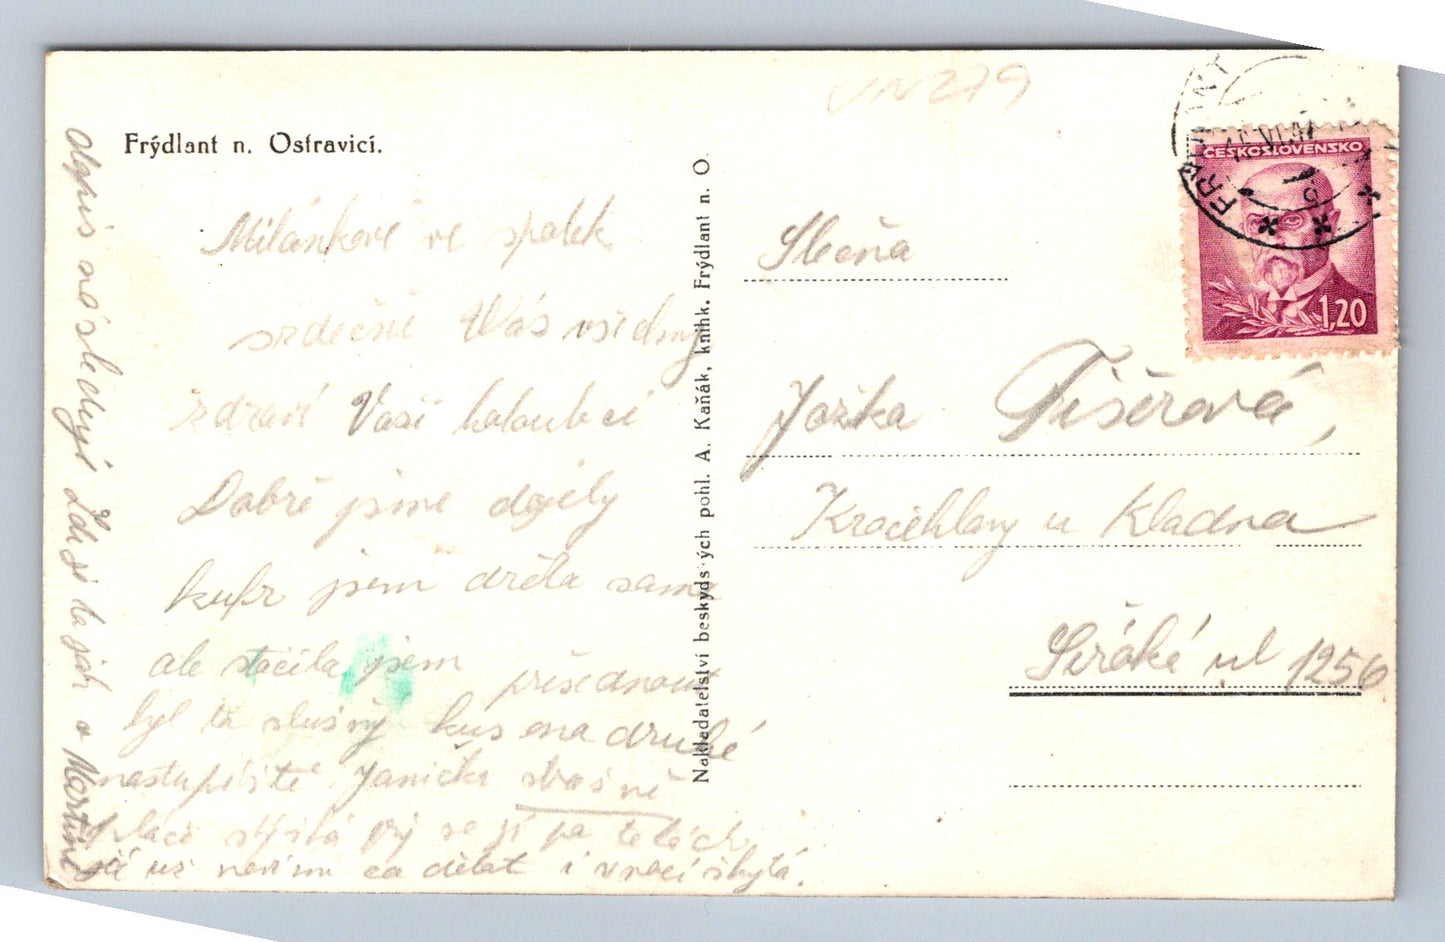 VN279
Frýdlant n. Ostravicí.
Milánkové ve spolek
srdečně Vás všechny
zdraví Vaši holoubci
Dobře jsme dojely
kufr jsem držela sama
ale stačila jsem přisednout
byl tu slušný kus ona druhé
nastupiště Janička strašně
pláče stýská prý se jí po tetách
já už nevím co dělat i vrací
Dopis následuje Zdeji
a Martin
Nakladatelství beskydských pohl. A. Kaňák, knihk. Frýdlant n. O.
FRÝDLANT
ČESKOSLOVENSKO
1,20
Slečna
Jožka Tišerová,
Kročehlavy u Kladna
Široká ul 1256